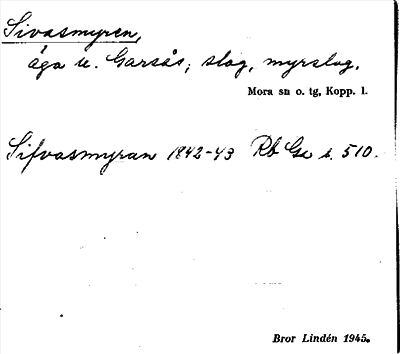 Sivasmyren,
äga u. Garsås; slog, myrslog.
Mora sn o. tg, Kopp. l.
Sifvasmyran 1842-43 Rb Ga s. 510.
Bror Lindén 1945.